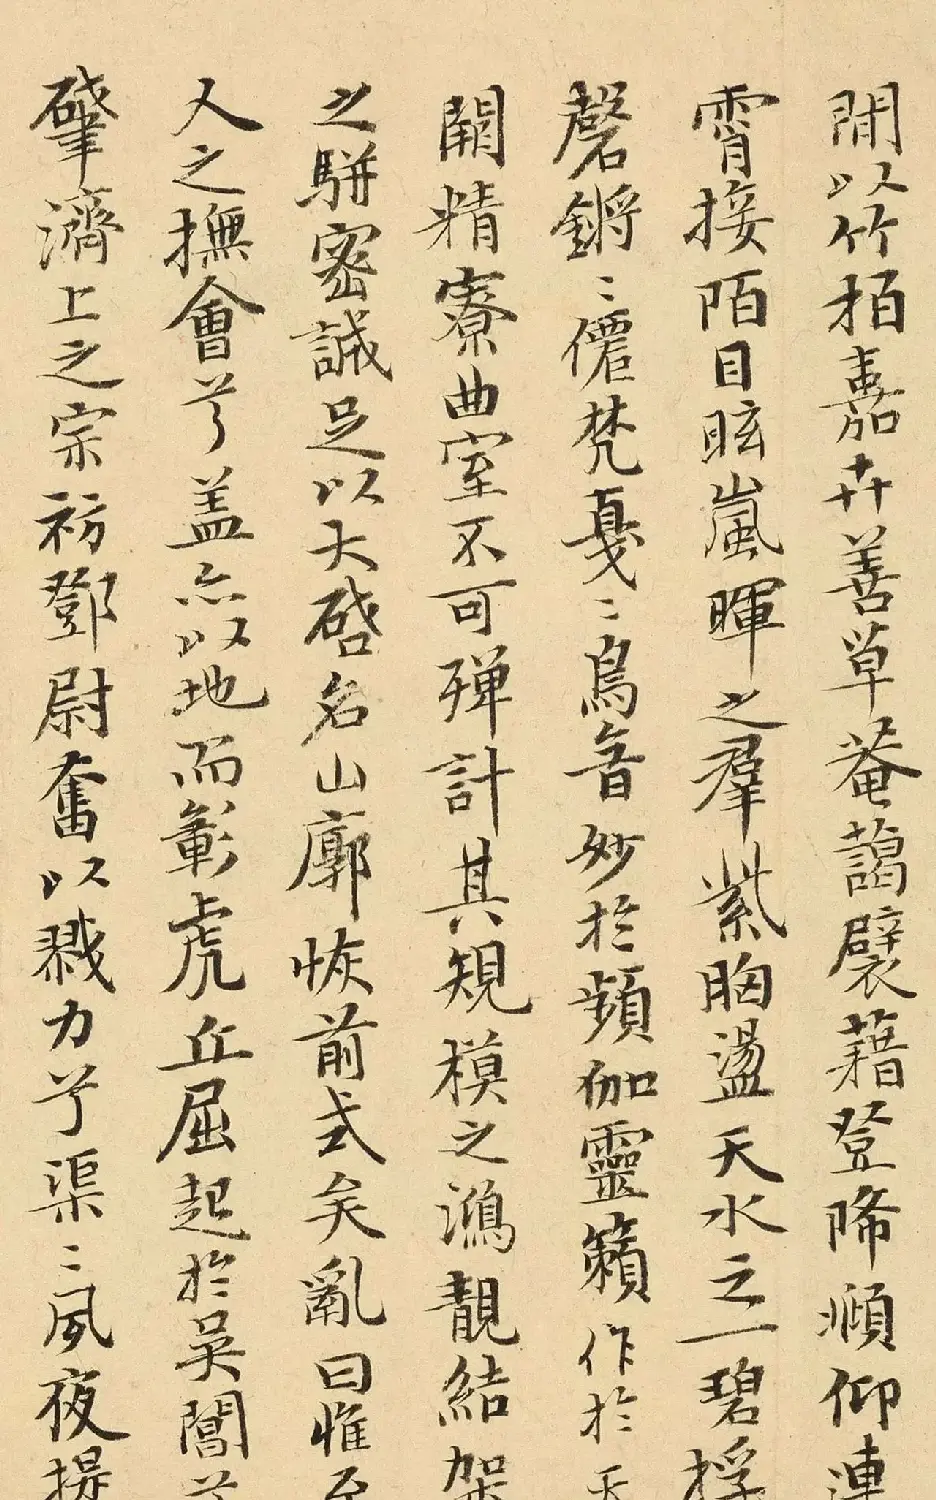 閒以竹栢嘉卉善草菴藹襞藉登降順仰連
霄接陌目眩嵐暉之羣紫胸盪天水之一碧桴
磬鏘〻僊梵戞〻鳥音妙於頻伽靈籟作於天
闢精寮曲室不可殫計其規模之鴻靚結架
之駢密誠足以大啓名山廓恢前式矣亂曰惟至
人之撫會兮盖亦以地而彰虎丘屈起於吳閶兮
肇濟上之宗初鄧尉奮以戮力兮渠〻夙夜提